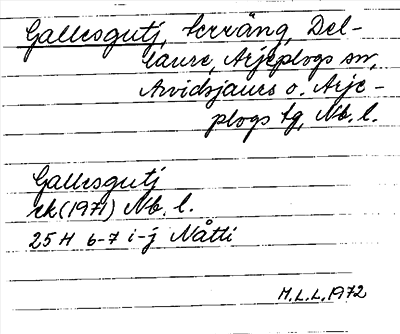 Gallesgutj, terräng, Del-
laure, Arjeplogs sn,
Arvidsjaurs o. Arje-
plogs tg, Nb. l.
Gallesgutj
rk (1971) Nb. l.
25 H 6-7 i-j Nåtti
M.L.L. 1972